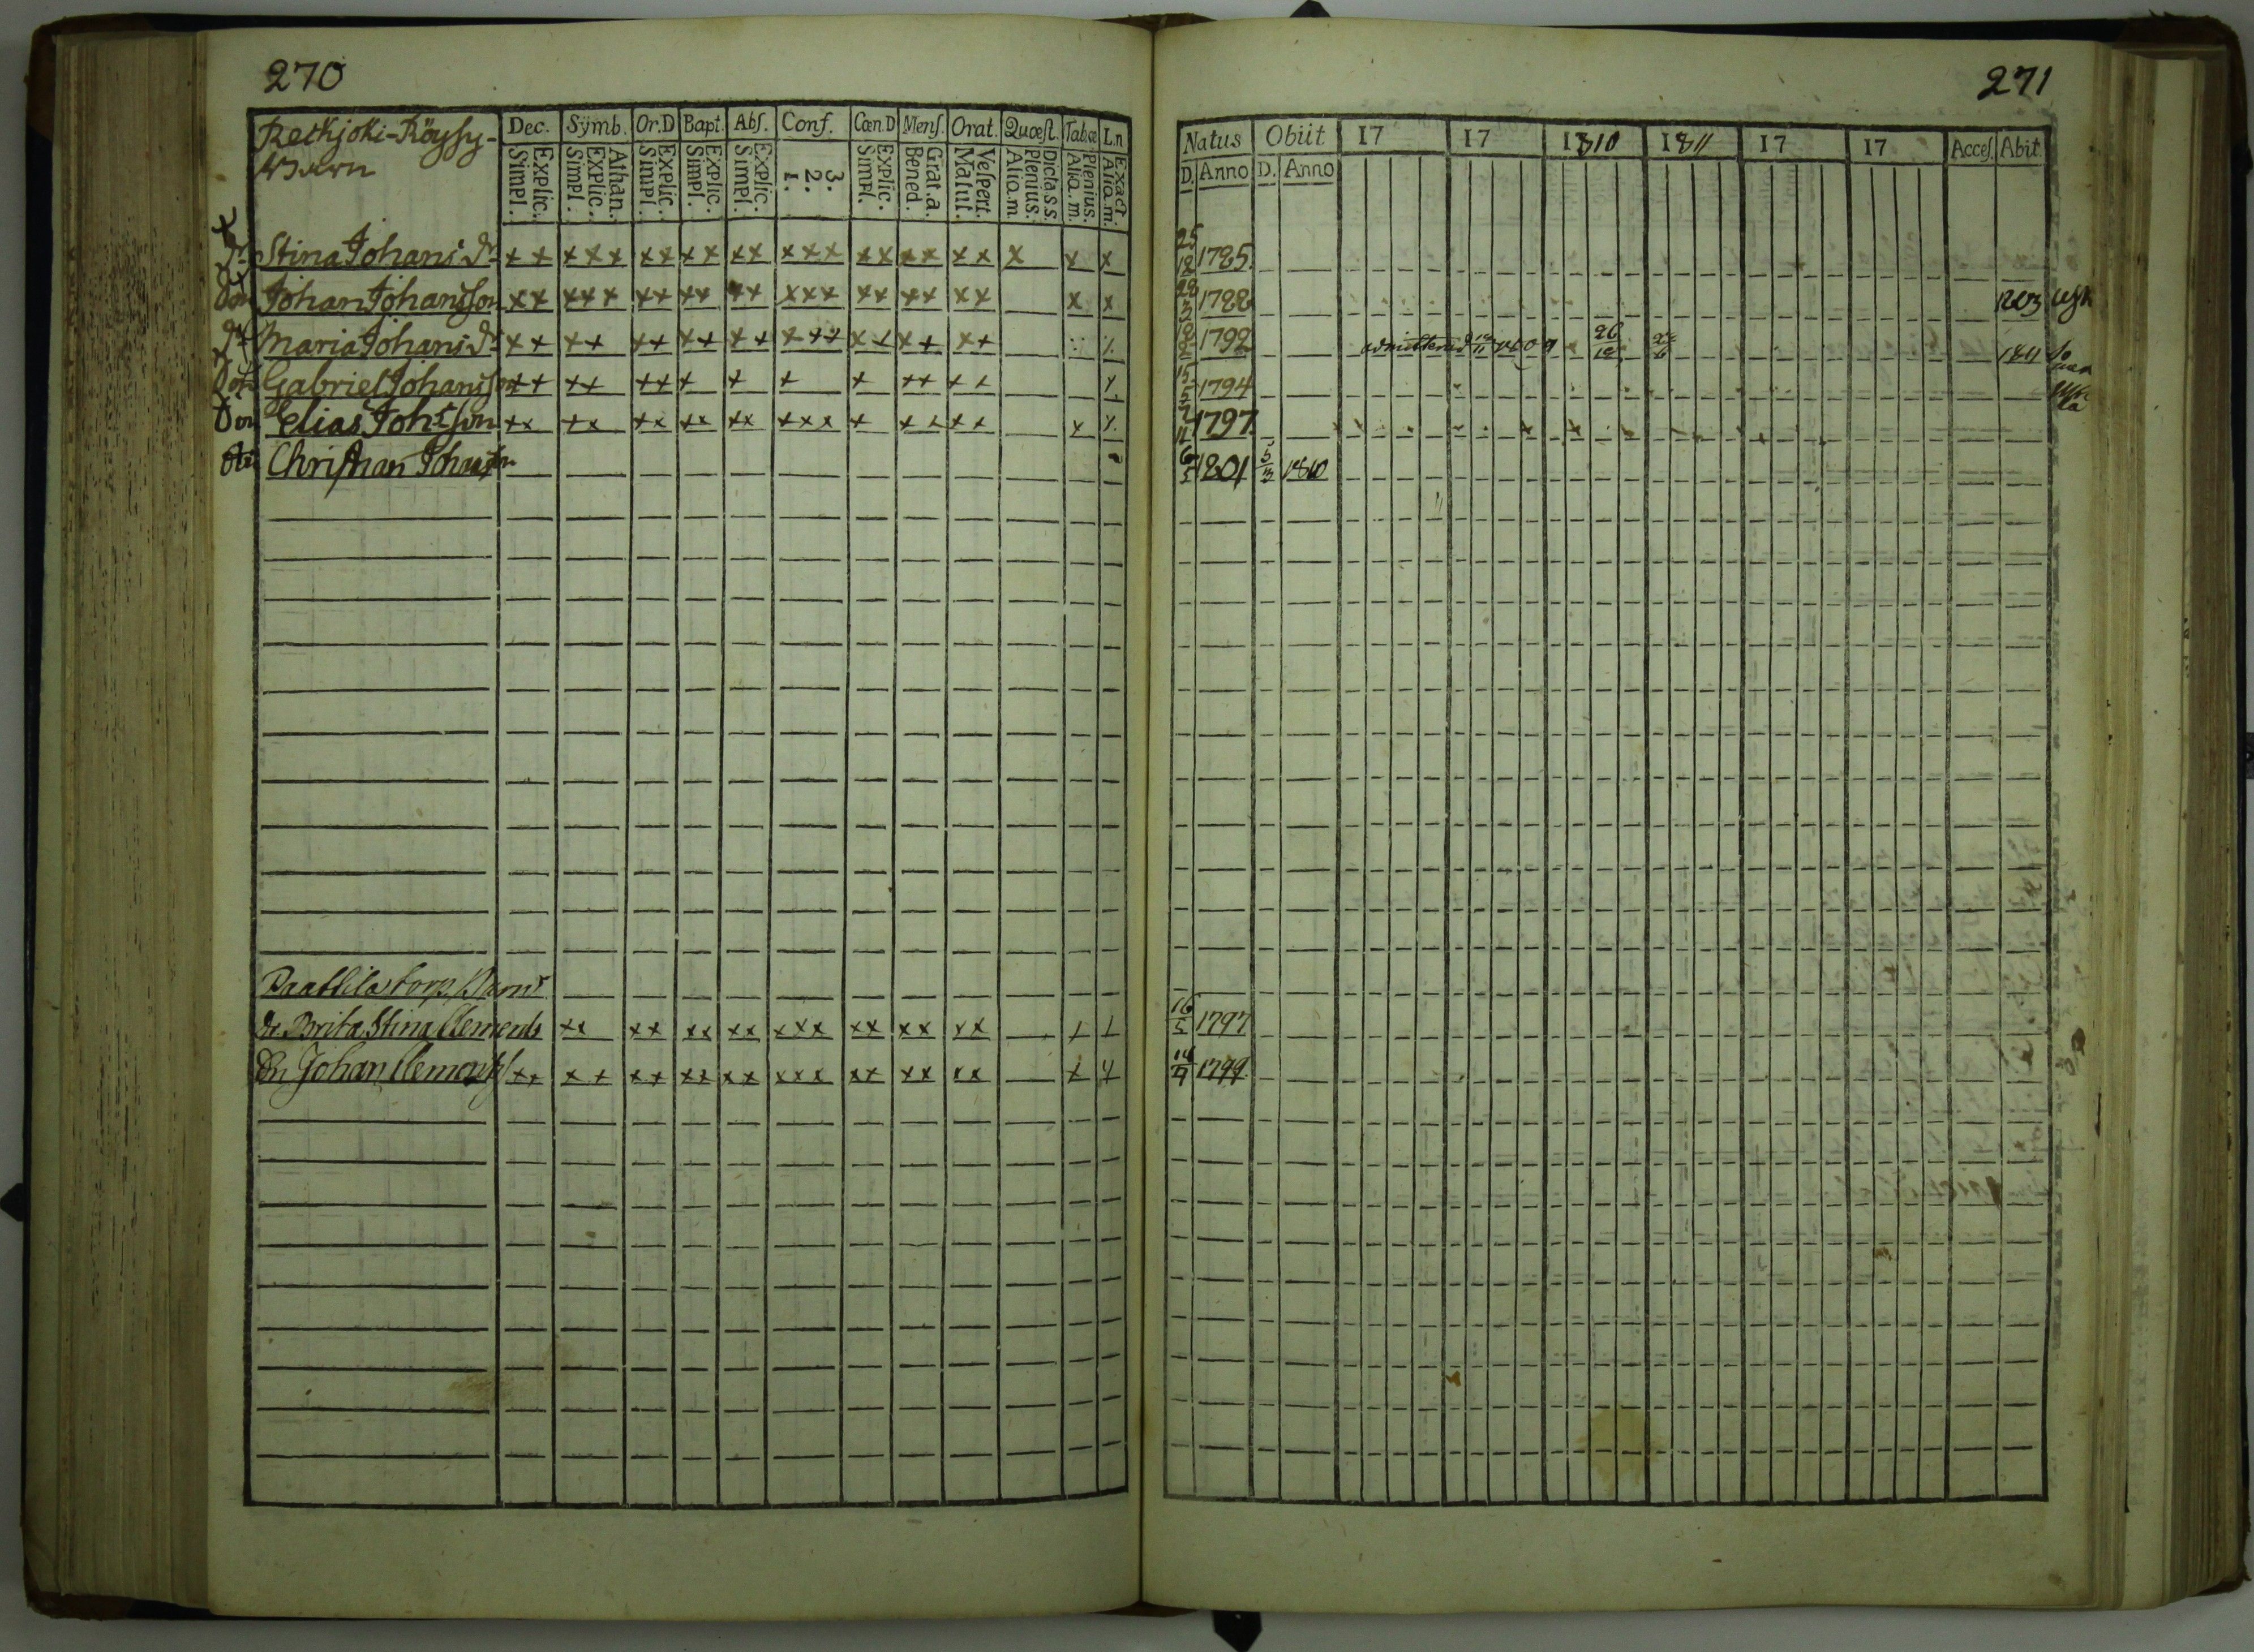 270
Reckjoki-Röysy-
Barn
Dec. Symb. Or.D Bapt. Abs. Conf. Cœn.D Mens. Orat. Quæst. Tab.œ L.n
Explic. Simpl. Athan. Explic. Simpl. Explic. Simpl. Explic. Simpl. Explic. Simpl. 3. 2. 1. Explic. Simpl. Grat.a. Bened. Vespert. Matut. Dicta.s.s. Plenius. Alia.m. Plenius. Alia.m. Exact. Alia.m.
dr Stina Johansdr x x x x x x x x x x x x x x x x x x x x x x x
Son Johan Johansson x x x x x x x x x x x x x x x x x x x x x x
dr Maria Johansdr x x x x x x x x x x x x x x x x x x x
Son Gabriel Johansson x x x x x x x x x x x x x x x
Son Elias Johsson x x x x x x x x x x x x x x x x x x x x
Christian Johansson
torp Barn
dr Brita Stina Clements x x x x x x x x x x x x x x x x x x x
Sn Johan Clements x x x x x x x x x x x x x x x x x x x x x
271
Natus Obiit 17 17 1810 1811 17 17 Acces. Abit.
D. Anno D. Anno
25/12 1785
28/3 1788 1803
18/2 1792 admitterad 1809 26/12 1811
15/5 1794
1797
6/5 1801 5/3 1810
16/5 1797
14/9 1799